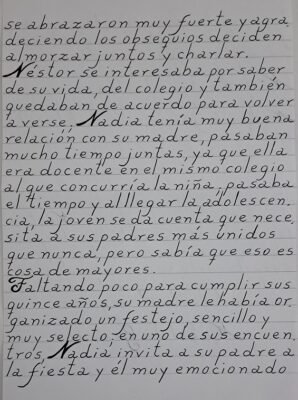 se abrazaron muy fuerte y agra.
deciendo los obsequios deciden
almorzar juntos y charlar.
Néstor se interesaba por saber
de su vida, del colegio y también
quedaban de acuerdo para volver
a verse, Nadia tenía muy buena
relación con su madre, pasaban
mucho tiempo juntas, ya que ella
era docente en el mismo colegio
al que concurría la niña, pasaba
el tiempo y al llegar la adolescen.
cia, la joven se da cuenta que nece.
sita a sus padres más unidos
que nunca, pero sabía que eso es
cosa de mayores.
Faltando poco para cumplir sus
quince años, su madre le había or.
ganizado un festejo, sencillo y
muy selecto, en uno de sus encuen.
tros, Nadia invita a su padre a
la fiesta y él muy emocionado